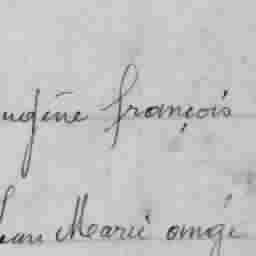 ugène françois
ean Marie ange